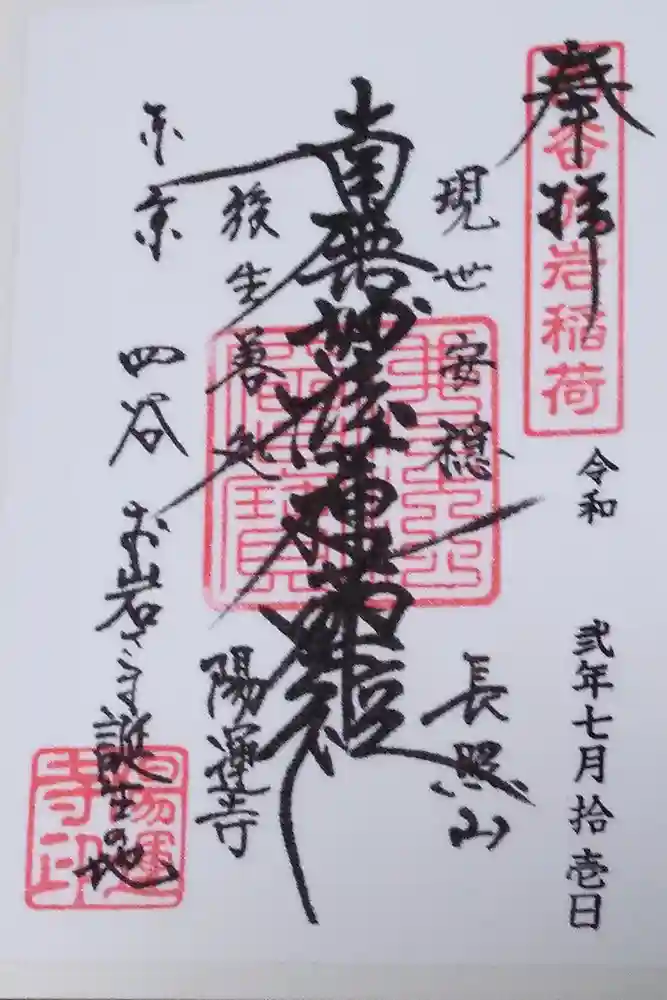 奉拝
四谷於岩稲荷
令和 弐年七月拾壱日
現世安穏 長照山
南無妙法蓮華経
後生善処 陽運寺
東京 四谷 お岩さま誕生の地
陽運寺印